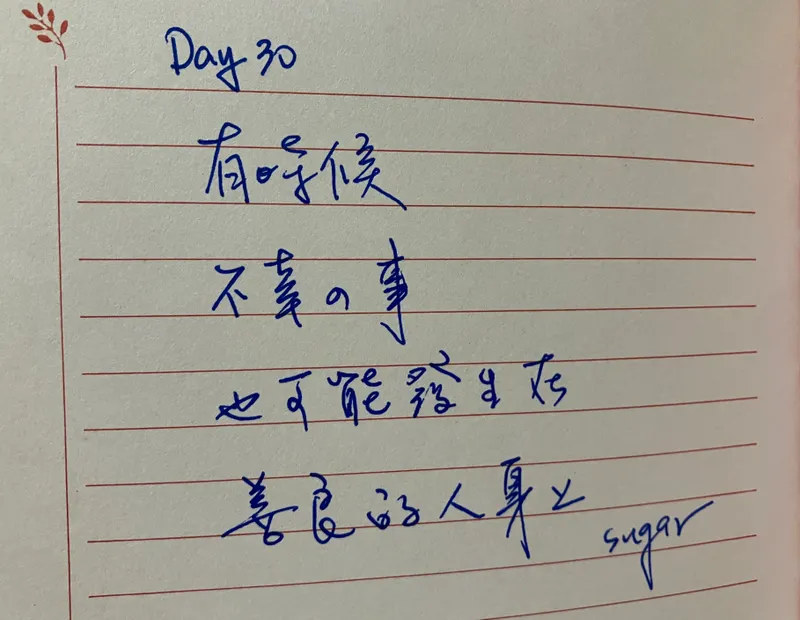 Day 30
有時候
不幸の事
也可能發生在
善良的人身上
sugar